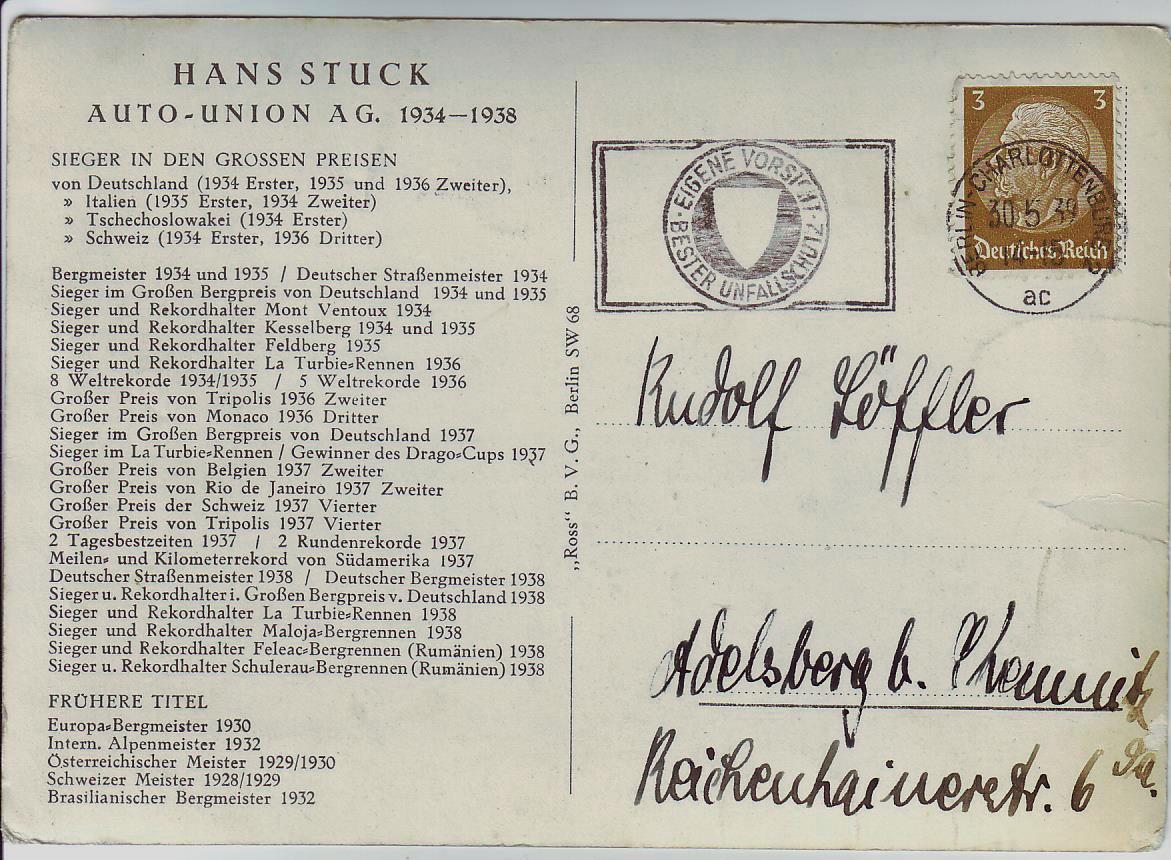 HANS STUCK
AUTO-UNION AG. 1934—1938
SIEGER IN DEN GROSSEN PREISEN
von Deutschland (1934 Erster, 1935 und 1936 Zweiter),
» Italien (1935 Erster, 1934 Zweiter)
» Tschechoslowakei (1934 Erster)
» Schweiz (1934 Erster, 1936 Dritter)
Bergmeister 1934 und 1935 / Deutscher Straßenmeister 1934
Sieger im Großen Bergpreis von Deutschland 1934 und 1935
Sieger und Rekordhalter Mont Ventoux 1934
Sieger und Rekordhalter Kesselberg 1934 und 1935
Sieger und Rekordhalter Feldberg 1935
Sieger und Rekordhalter La Turbie-Rennen 1936
8 Weltrekorde 1934/1935 / 5 Weltrekorde 1936
Großer Preis von Tripolis 1936 Zweiter
Großer Preis von Monaco 1936 Dritter
Sieger im Großen Bergpreis von Deutschland 1937
Sieger im La Turbie-Rennen / Gewinner des Drago-Cups 1937
Großer Preis von Belgien 1937 Zweiter
Großer Preis von Rio de Janeiro 1937 Zweiter
Großer Preis der Schweiz 1937 Vierter
Großer Preis von Tripolis 1937 Vierter
2 Tagesbestzeiten 1937 / 2 Rundenrekorde 1937
Meilen- und Kilometerrekord von Südamerika 1937
Deutscher Straßenmeister 1938 / Deutscher Bergmeister 1938
Sieger u. Rekordhalter i. Großen Bergpreis v. Deutschland 1938
Sieger und Rekordhalter La Turbie-Rennen 1938
Sieger und Rekordhalter Maloja-Bergrennen 1938
Sieger und Rekordhalter Feleac-Bergrennen (Rumänien) 1938
Sieger u. Rekordhalter Schulerau-Bergrennen (Rumänien) 1938
FRÜHERE TITEL
Europa-Bergmeister 1930
Intern. Alpenmeister 1932
Österreichischer Meister 1929/1930
Schweizer Meister 1928/1929
Brasilianischer Bergmeister 1932
„Ross" B. V. G., Berlin SW 68
·EIGENE VORSICHT·
BESTER UNFALLSCHUTZ
3 3
Deutsches Reich
BERLIN-CHARLOTTENBURG 2
30.5.39
ac
Rudolf Löffler
Adelsberg b. Chemnitz
Reichenhainerstr. 6